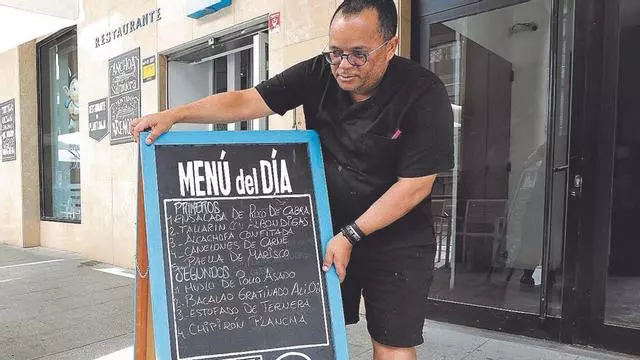 RESTAURANTE
ANCHOA
MENÚ del DÍA
PRIMEROS
1- ENSALADA DE RULO DE CABRA
2- TALLARIN CON ALBONDIGAS
3- ALCACHOFA CONFITADA
4- CANELONES DE CARNE
5- PAELLA DE MARISCO
SEGUNDOS
1- MUSLO DE POLLO ASADO
2- BACALAO GRATINADO ALI OLI
3- ESTOFADO DE TERNERA
4- CHIPIRON PLANCHA